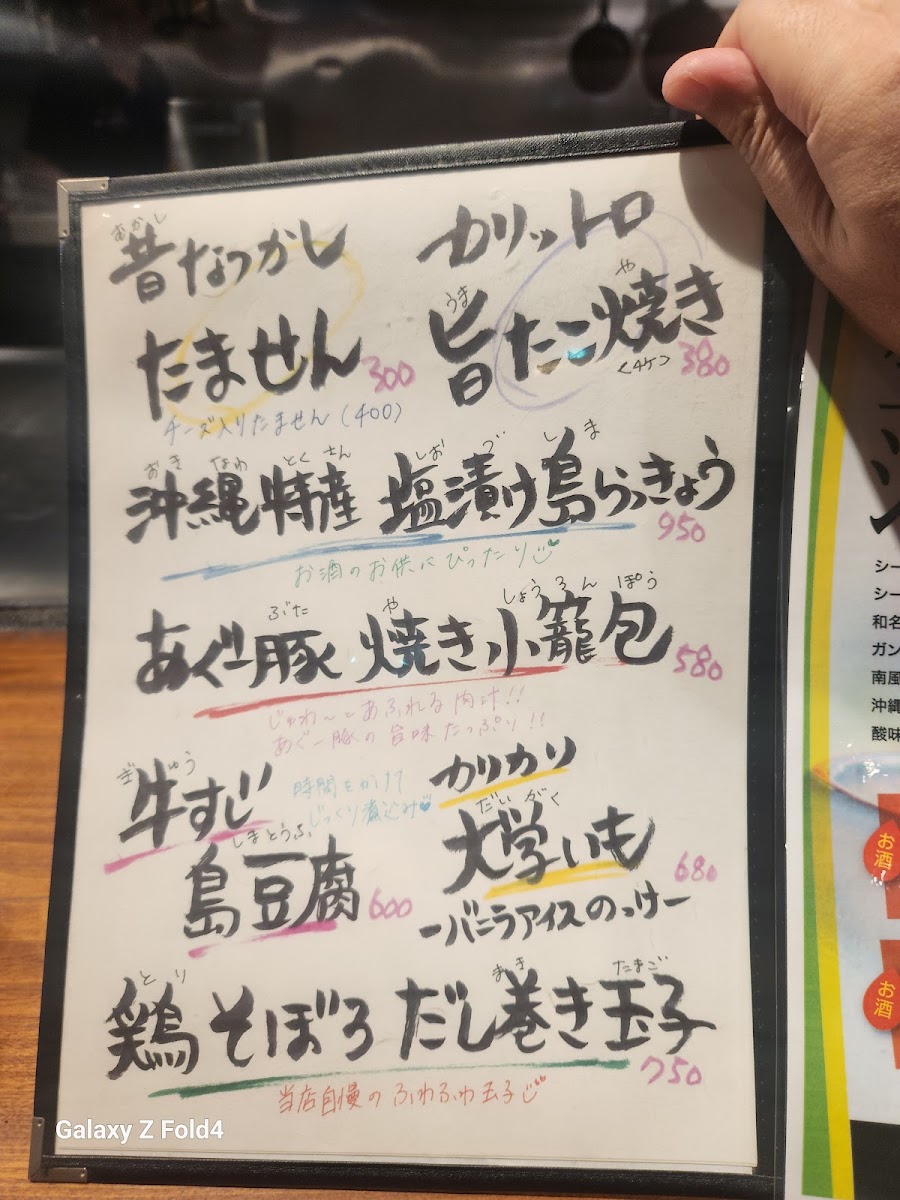 むかし
昔なつかし
たません 300
チーズ入りたません(400)
カリットロ
うま や
旨たこ焼き
<4ケ> 380
おき なわ とく さん しお づ しま
沖縄特産 塩漬け島らっきょう
950
お酒のお供にぴったり
ぶた や しょうろんぽう
あぐー豚 焼き小籠包
580
じゅわ～とあふれる肉汁!!
あぐー豚の旨味たっぷり!!
ぎゅう
牛すじ
時間をかけて
じっくり煮込み
しまとうふ
島豆腐 600
カリカリ
だいがく
大学いも
680
ーバニラアイスのっけー
とり まき たまご
鶏そぼろ だし巻き玉子
750
当店自慢のふわふわ玉子
シー
シー
和名
ガン
南風
沖縄
酸味
お酒
お酒
Galaxy Z Fold4